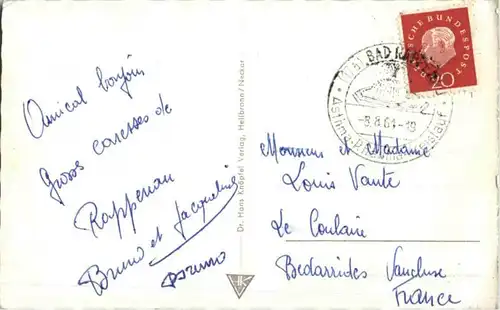 Amical bonjour
Gross caresses de
Rappenau
Bruno et Jacqueline
Bruno
Dr. Hans Knöpfel Verlag, Heilbronn/Neckar
BAD
-8.8.61-19
DEUTSCHE BUNDESPOST
20
Monsieur et Madame
Louis Vante
Le Coulaire
Bedarrides Vaucluse
France